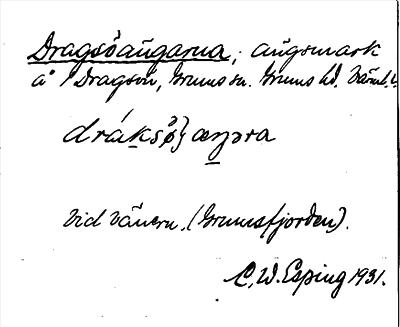 Dragsöängarna, ängsmark
å Dragsön, Grums sn. Grums hd. Värml. l.
dráksö} æŋəra
Vid Vänern. (Grumsfjorden).
C. W. Esping 1931.